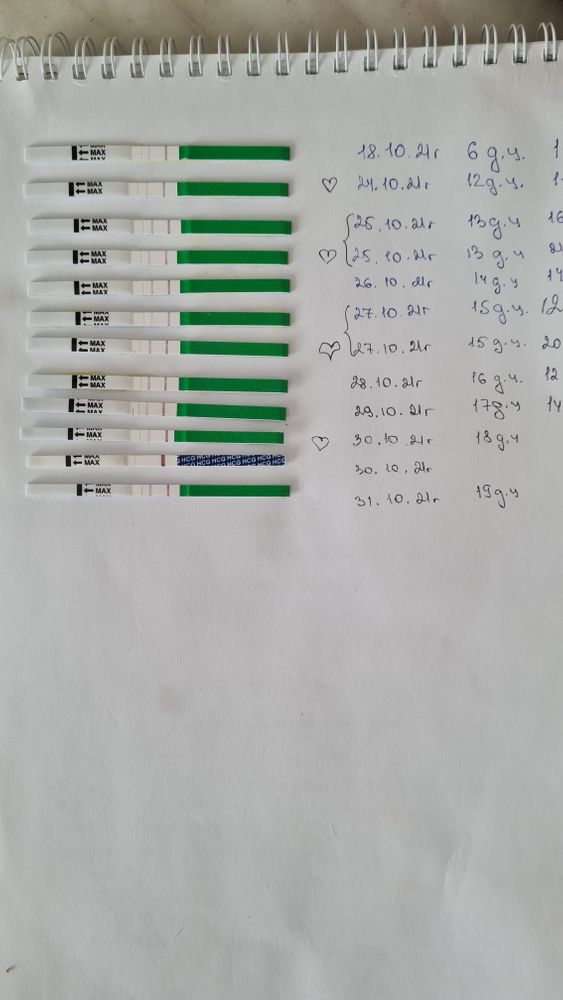 MAX MAX 18.10.21г 6 д.ц. 1
MAX MAX ♡ 24.10.21г 12д.ц. 1
MAX MAX 25.10.21г 13д.ц 16
MAX MAX ♡ 25.10.21г 13 д.ц
MAX MAX 26.10.21г 14 д.ц 14
MAX 27.10.21г 15д.ц. 12
MAX MAX ♡ 27.10.21г 15 д.ц. 20
MAX MAX 28.10.21г 16 д.ц. 12
MAX MAX 29.10.21г 17д.ц 14
MAX MAX ♡ 30.10.21г 18д.ц
MAX MAX HCG HCG HCG HCG HCG 30.10.21г
MAX 31.10.21г 19д.ц